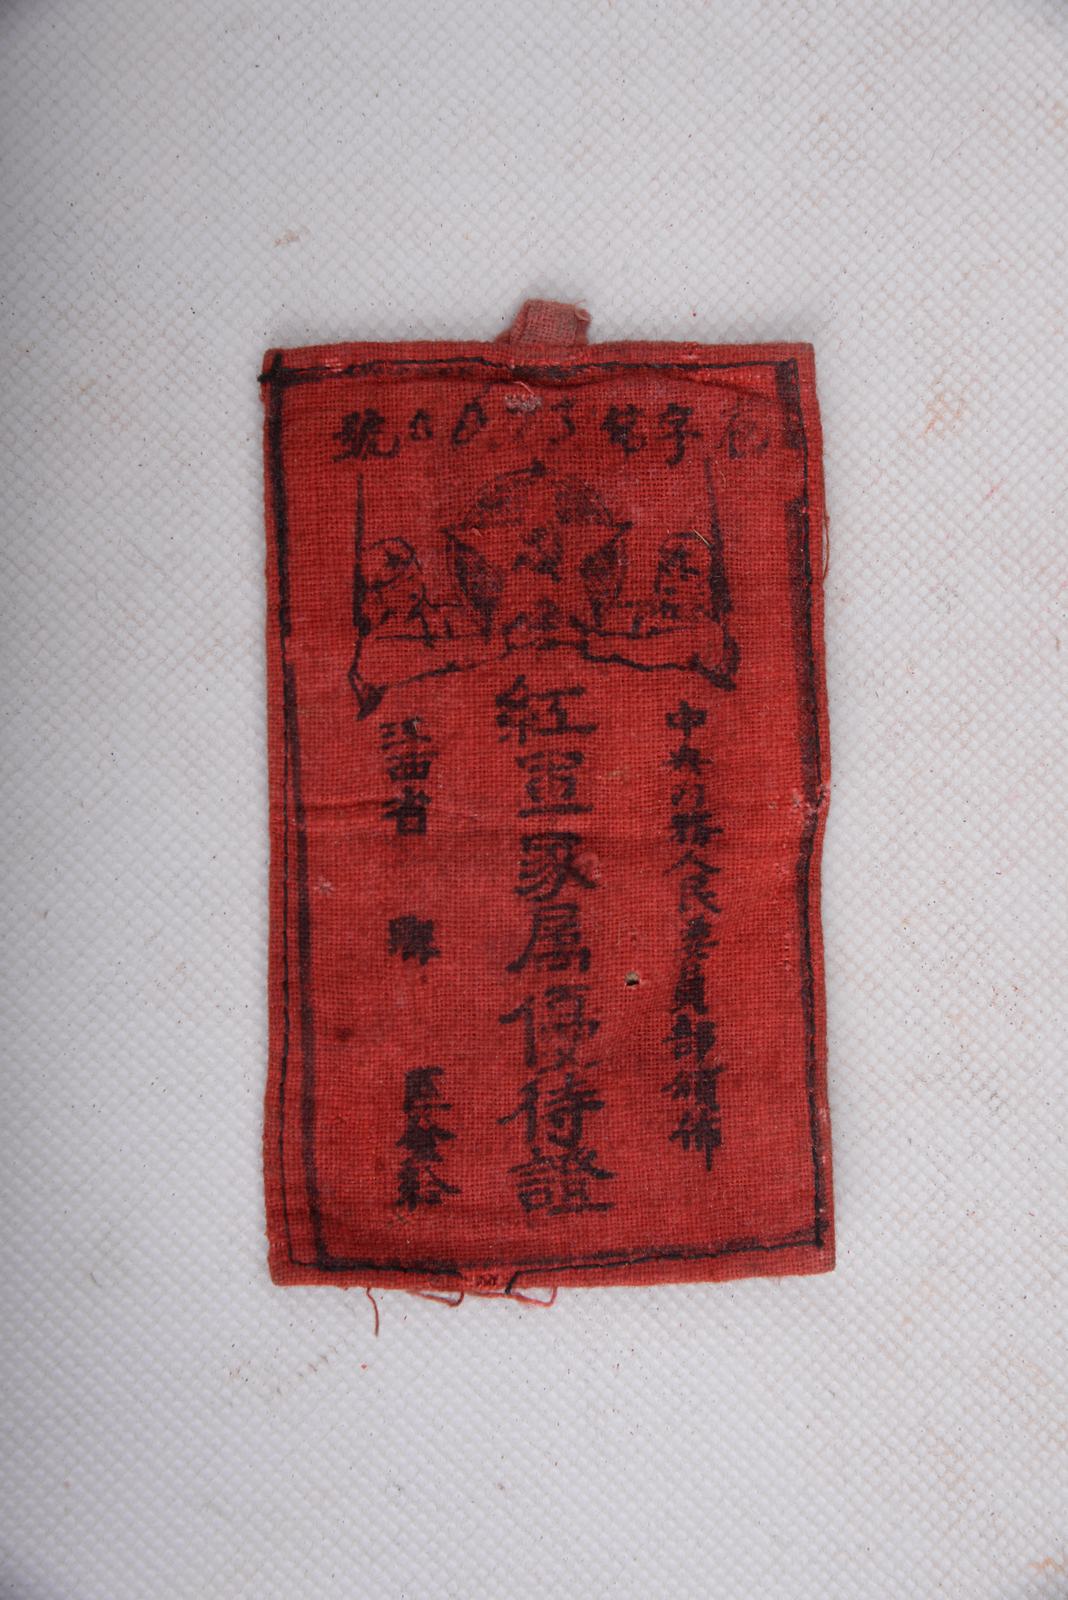 字第號
中央內務人民委員部頒佈
紅軍家屬優待證
江西省 縣 區發給